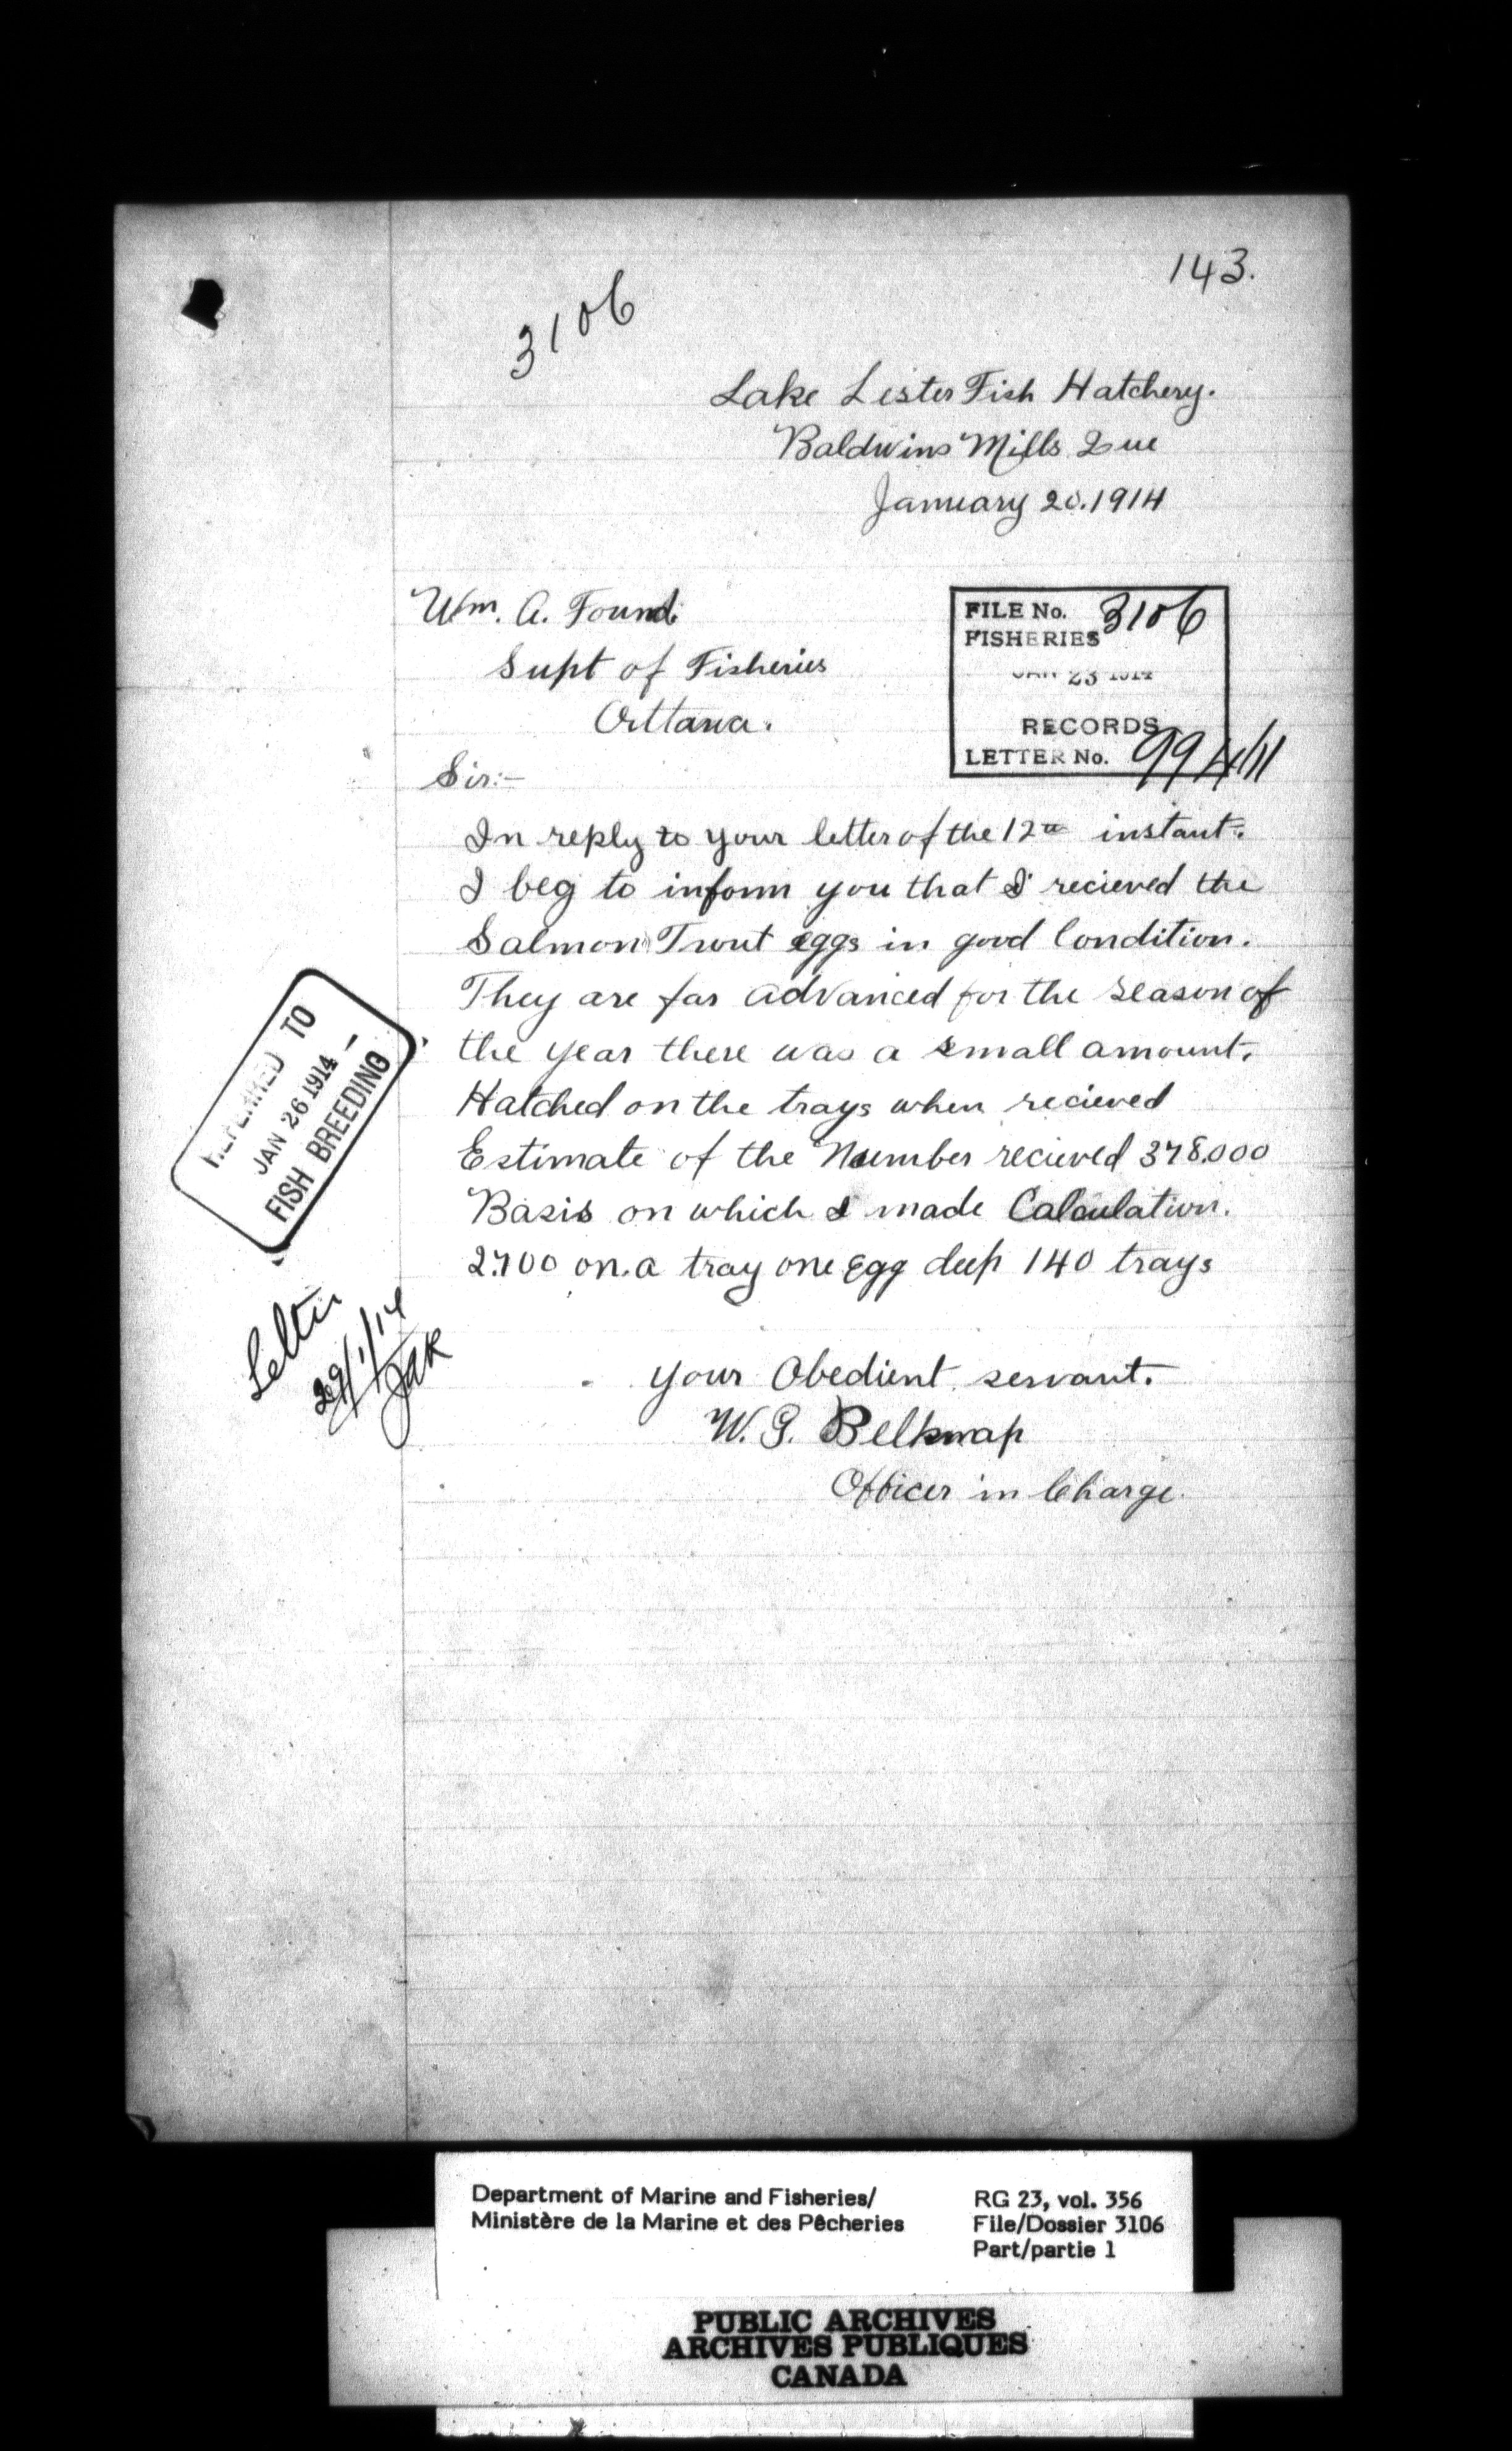 143.
3106
Lake Lester Fish Hatchery.
Baldwins Mills Que
January 20. 1914
Wm. A. Found.
Supt of Fisheries
Ottawa.
FILE No. 3106
FISHERIES
JAN 23 1914
RECORDS
LETTER No.
Sir:-
In reply to your letter of the 12th instant.
I beg to inform you that I recieved the
Salmon Trout eggs in good Condition.
They are far advanced for the season of
the year there was a small amount.
Hatched on the trays when recieved
Estimate of the Number recieved 378.000
Basis on which I made Calculation.
2700 on a tray one egg deep 140 trays
REFERRED TO
JAN 26 1914
FISH BREEDING
Letter
29/1/14
JAR
your Obedient servant.
W. G. Belknap
Officer in Charge.
Department of Marine and Fisheries/
Ministère de la Marine et des Pêcheries
RG 23, vol. 356
File/Dossier 3106
Part/partie 1
PUBLIC ARCHIVES
ARCHIVES PUBLIQUES
CANADA